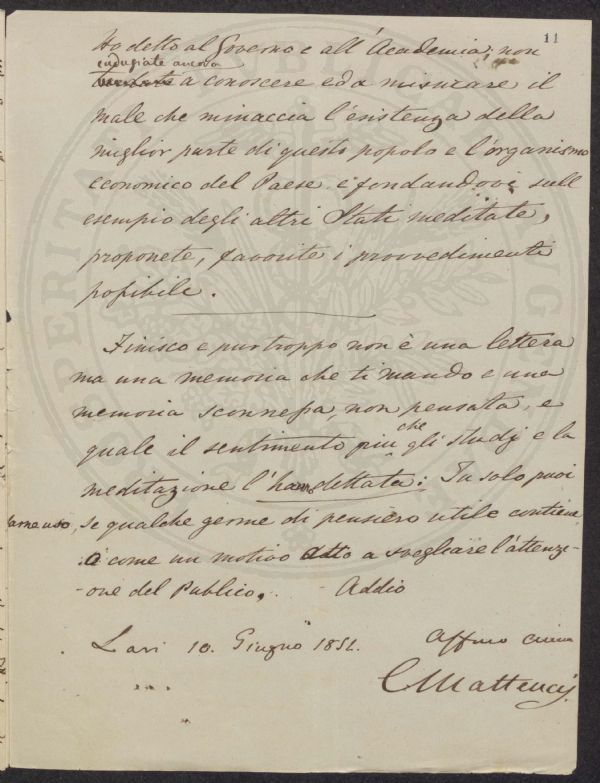 11
Ho detto al Governo e all'Academia: non
indugiate ancora
a conoscere ed a misurare il
male che minaccia l'esistenza della
miglior parte di questo popolo e l'organismo
economico del Paese e fondandovi sull
esempio degli altri Stati meditate,
proponete, favorite i provvedimenti
possibile.
Finisco e pur troppo non è una lettera
ma una memoria che ti mando e una
memoria sconnessa, non pensata, e
quale il sentimento più che gli studj e la
meditazione l'hanno dettata: Tu solo puoi
farne uso, se qualche germe di pensiero utile contiene
o come un motivo atto a svegliare l'attenzi-
-one del Publico. Addio
Lari 10. Giugno 1851.
Affmo
CMatteucci